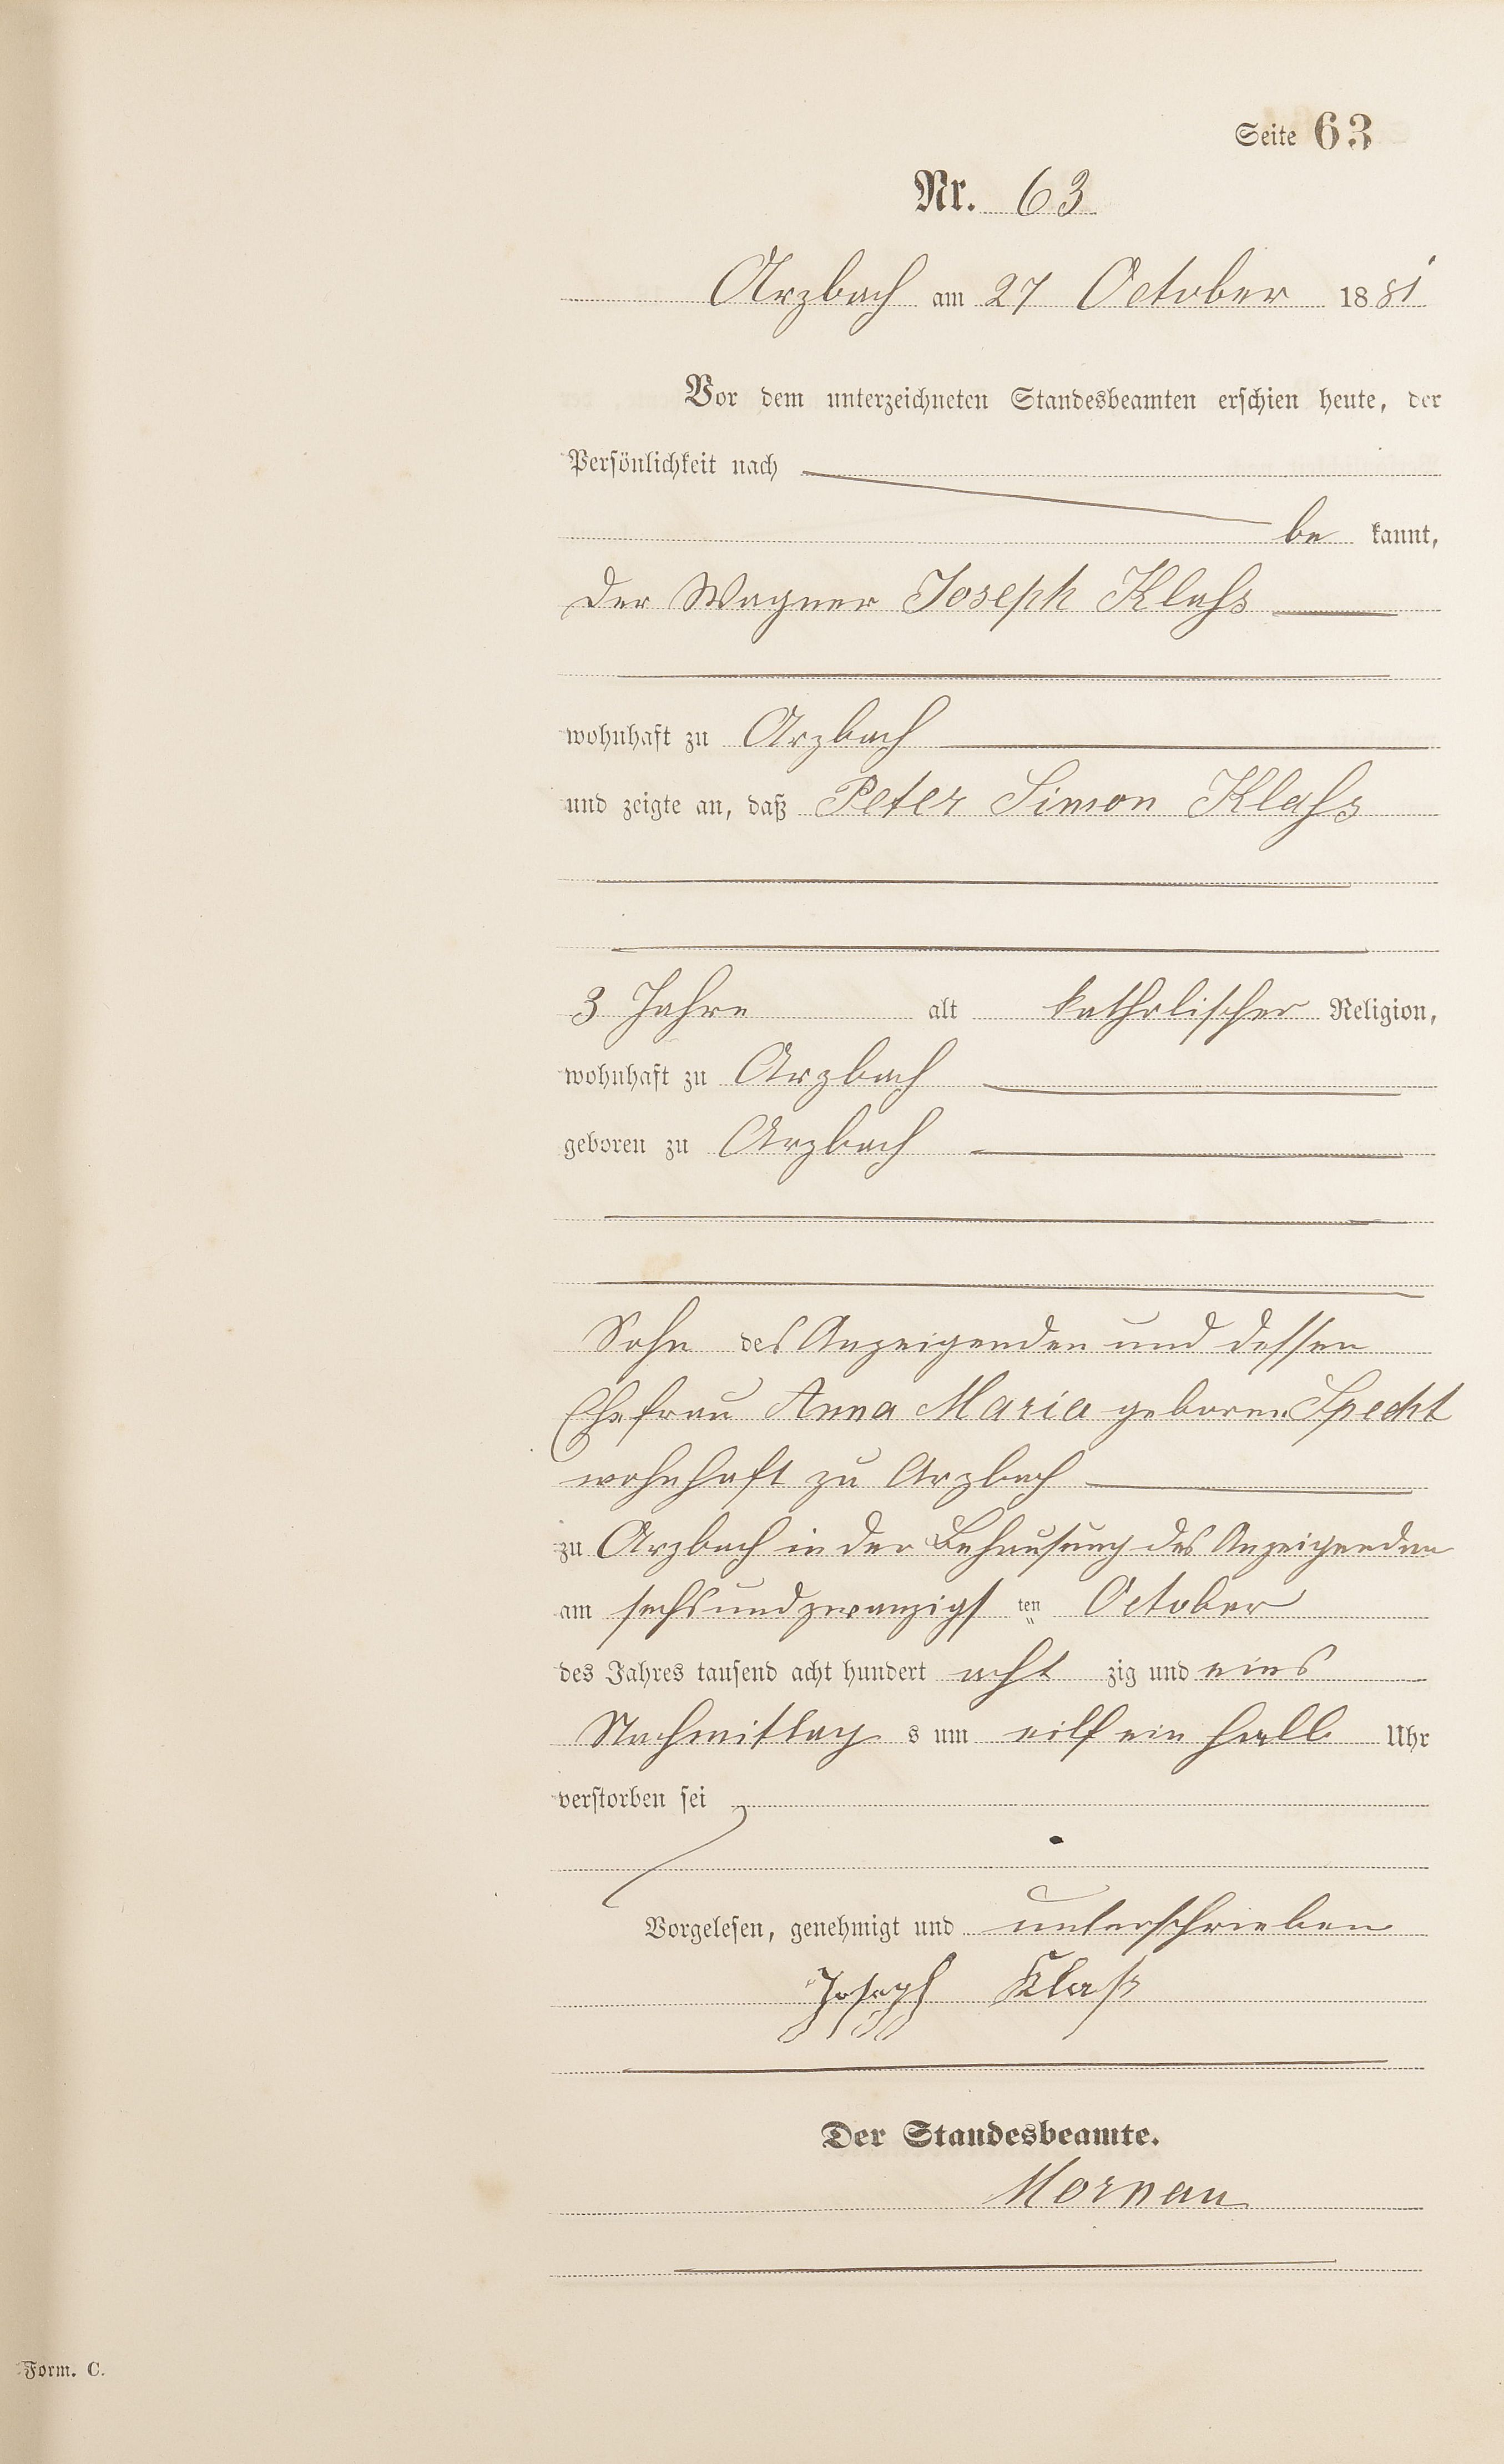 Seite 63
Nr. 63
Arzbach am 27 October 1881
Vor dem unterzeichneten Standesbeamten erschien heute, der
Persönlichkeit nach
be kannt,
der Wagner Joseph Klaſs
wohnhaft zu Arzbach
und zeigte an, daß Peter Simon Klaſs
3 Jahre alt katholischer Religion,
wohnhaft zu Arzbach
geboren zu Arzbach
Sohn des Anzeigenden und dessen
Ehefrau Anna Maria geborene Specht
wohnhaft zu Arzbach
zu Arzbach in der Behausung des Anzeigenden
am sechsundzwanzigs ten October
des Jahres tausend acht hundert acht zig und eins
Nachmittag s um eilf ein halb Uhr
verstorben sei
Vorgelesen, genehmigt und unterschrieben
Joseph Klaß
Der Standesbeamte.
Mornau
Form. C.